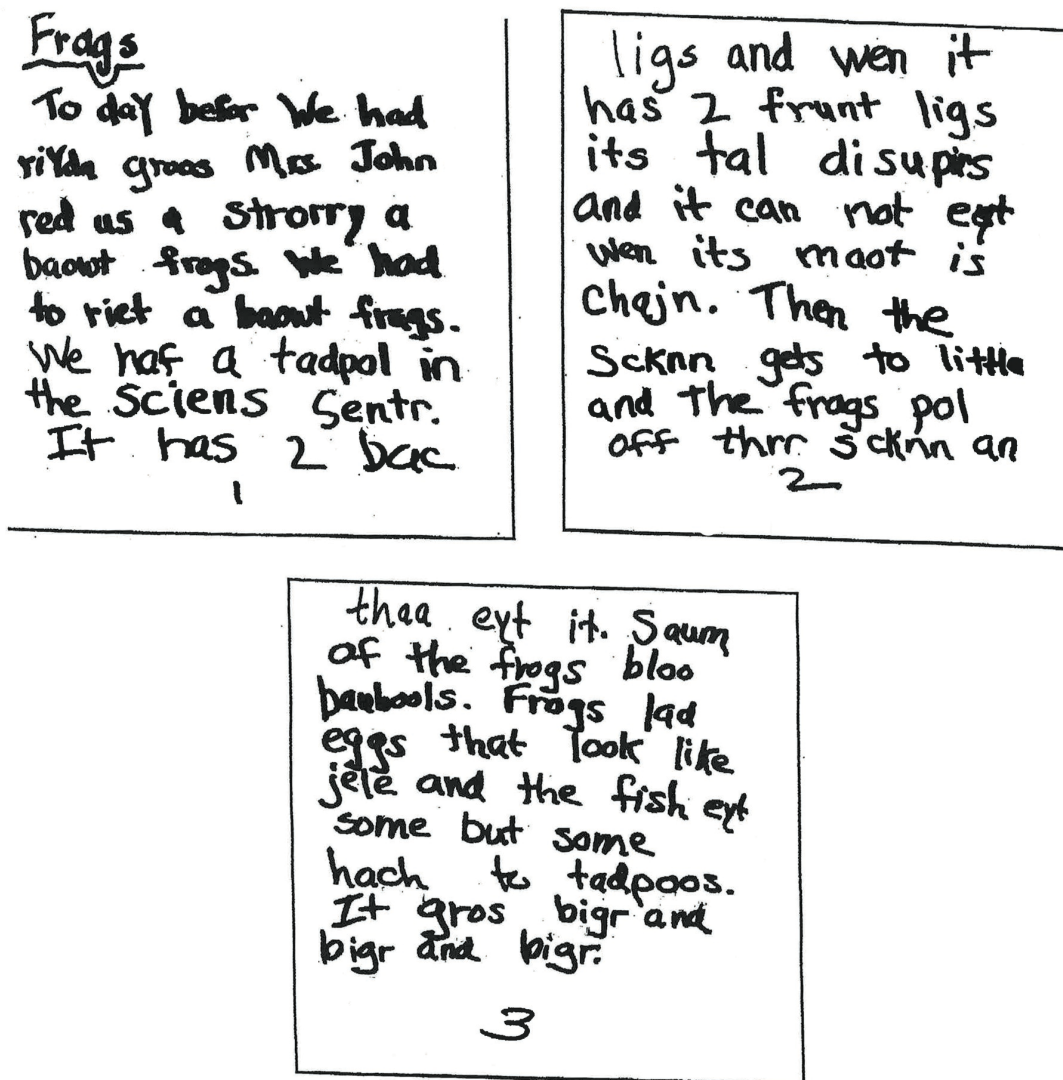 Frags
To day befor We had
riYda groos Mrs. John
red us a strorry a
baowt frogs. We had
to riet a baowt frags.
We haf a tadpol in
the sciens Sentr.
It has 2 bac
1
ligs and wen it
has 2 frunt ligs
its tal disupirs
and it can not eyt
wen its maot is
chajn. Then the
Scknn gets to little
and The frags pol
off thrr scknn an
2
thaa eyt it. Saum
of the frogs bloo
baubools. Frogs lad
eggs that look like
jele and the fish eyt
some but some
hach to tadpoos.
It gros bigr and
bigr and bigr.
3